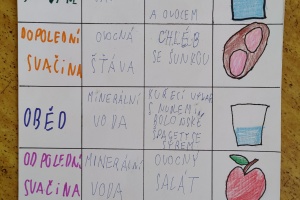 A OVOCEM
DOPOLEDNÍ
SVAČINA
OVOCNÁ
ŠŤÁVA
CHLÉB
SE ŠUNKOU
OBĚD
MINERÁLNÍ
VODA
KUŘECÍ VÝVAR
S NUDLEMI
BOLOŇSKÉ
ŠPAGETY SE
SÝREM
ODPOLEDNÍ
SVAČINA
MINERÁLNÍ
VODA
OVOCNÝ
SALÁT